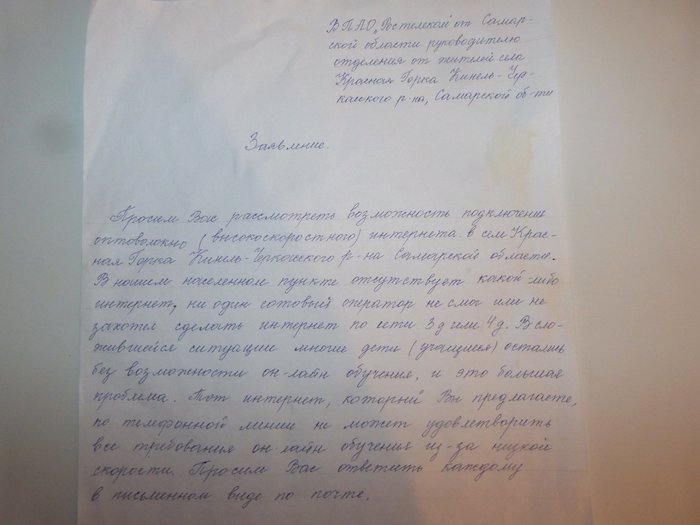 В ПАО „Ростелеком" от Самар-
ской области руководителю
отделения от жителей села
Красная Горка Кинель-Чер-
касского р-на, Самарской об-ти
Заявление.
Просим Вас рассмотреть возможность подключение
оптоволокно (высокоскоростного) интернета в селе Крас-
ная Горка Кинель-Черкасского р-на Самарской области.
В нашем населенном пункте отсутствует какой-либо
интернет, ни один сотовый оператор не смог или не
захотел сделать интернет по сети 3д или 4д. В сло-
жившейся ситуации многие дети (учащиеся) остались
без возможности он-лайн обучения, и это большая
проблема. Тот интернет, который Вы предлагаете,
по телефонной линии не может удовлетворить
все требования он-лайн обучения из-за низкой
скорости. Просим Вас ответить каждому
в письменном виде по почте.